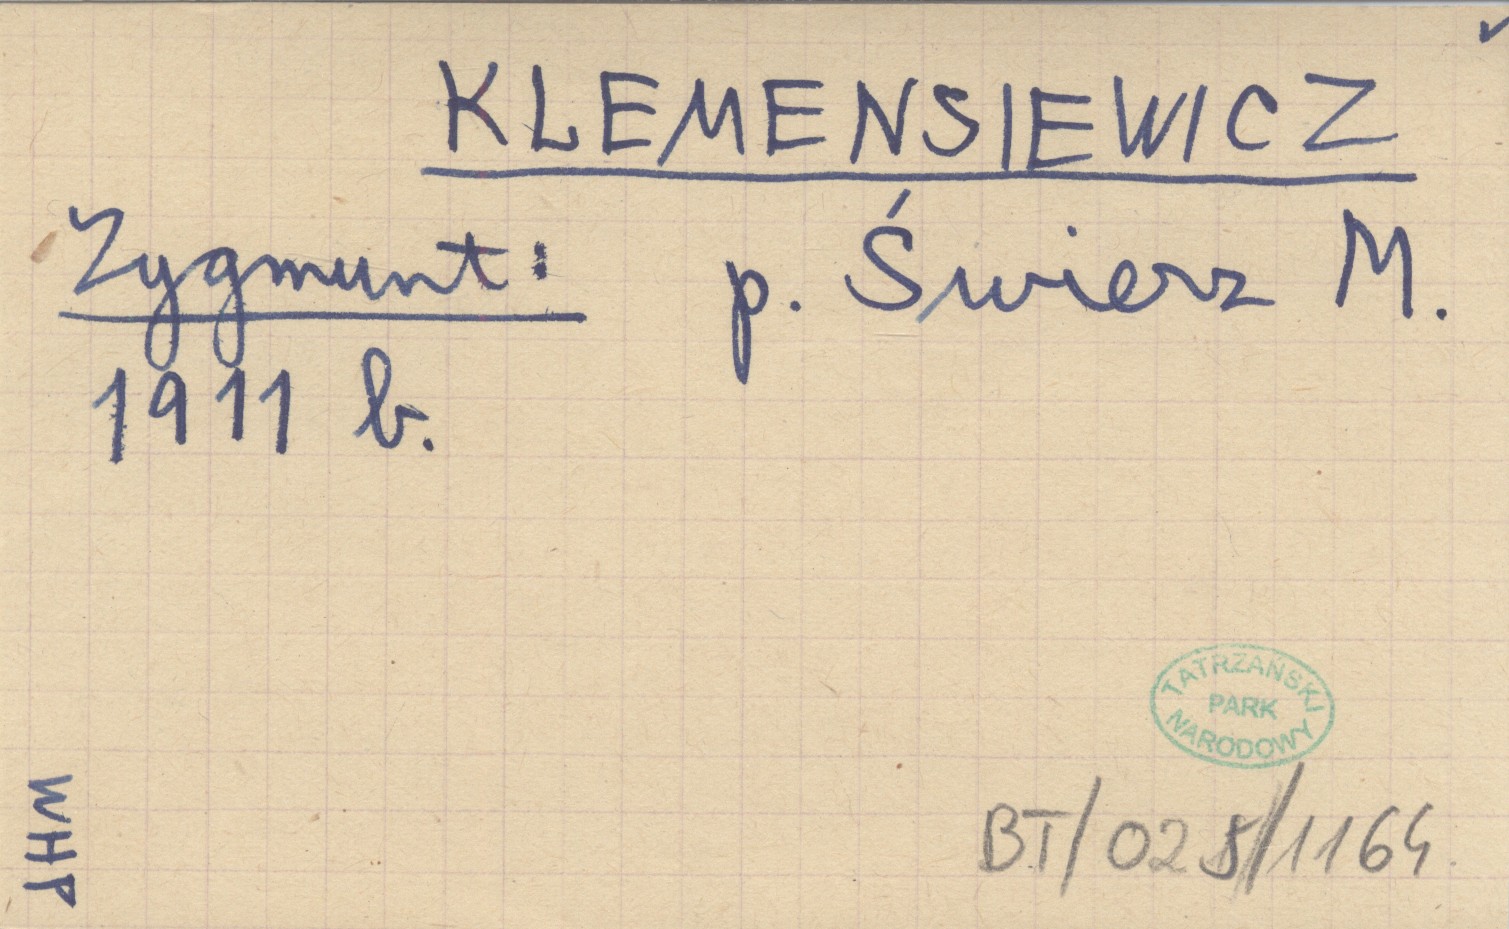 KLEMENSIEWICZ
Zygmunt: p. Świerz M.
1911 b.
TATRZAŃSKI
PARK
NARODOWY
BT/028/1164
WHP